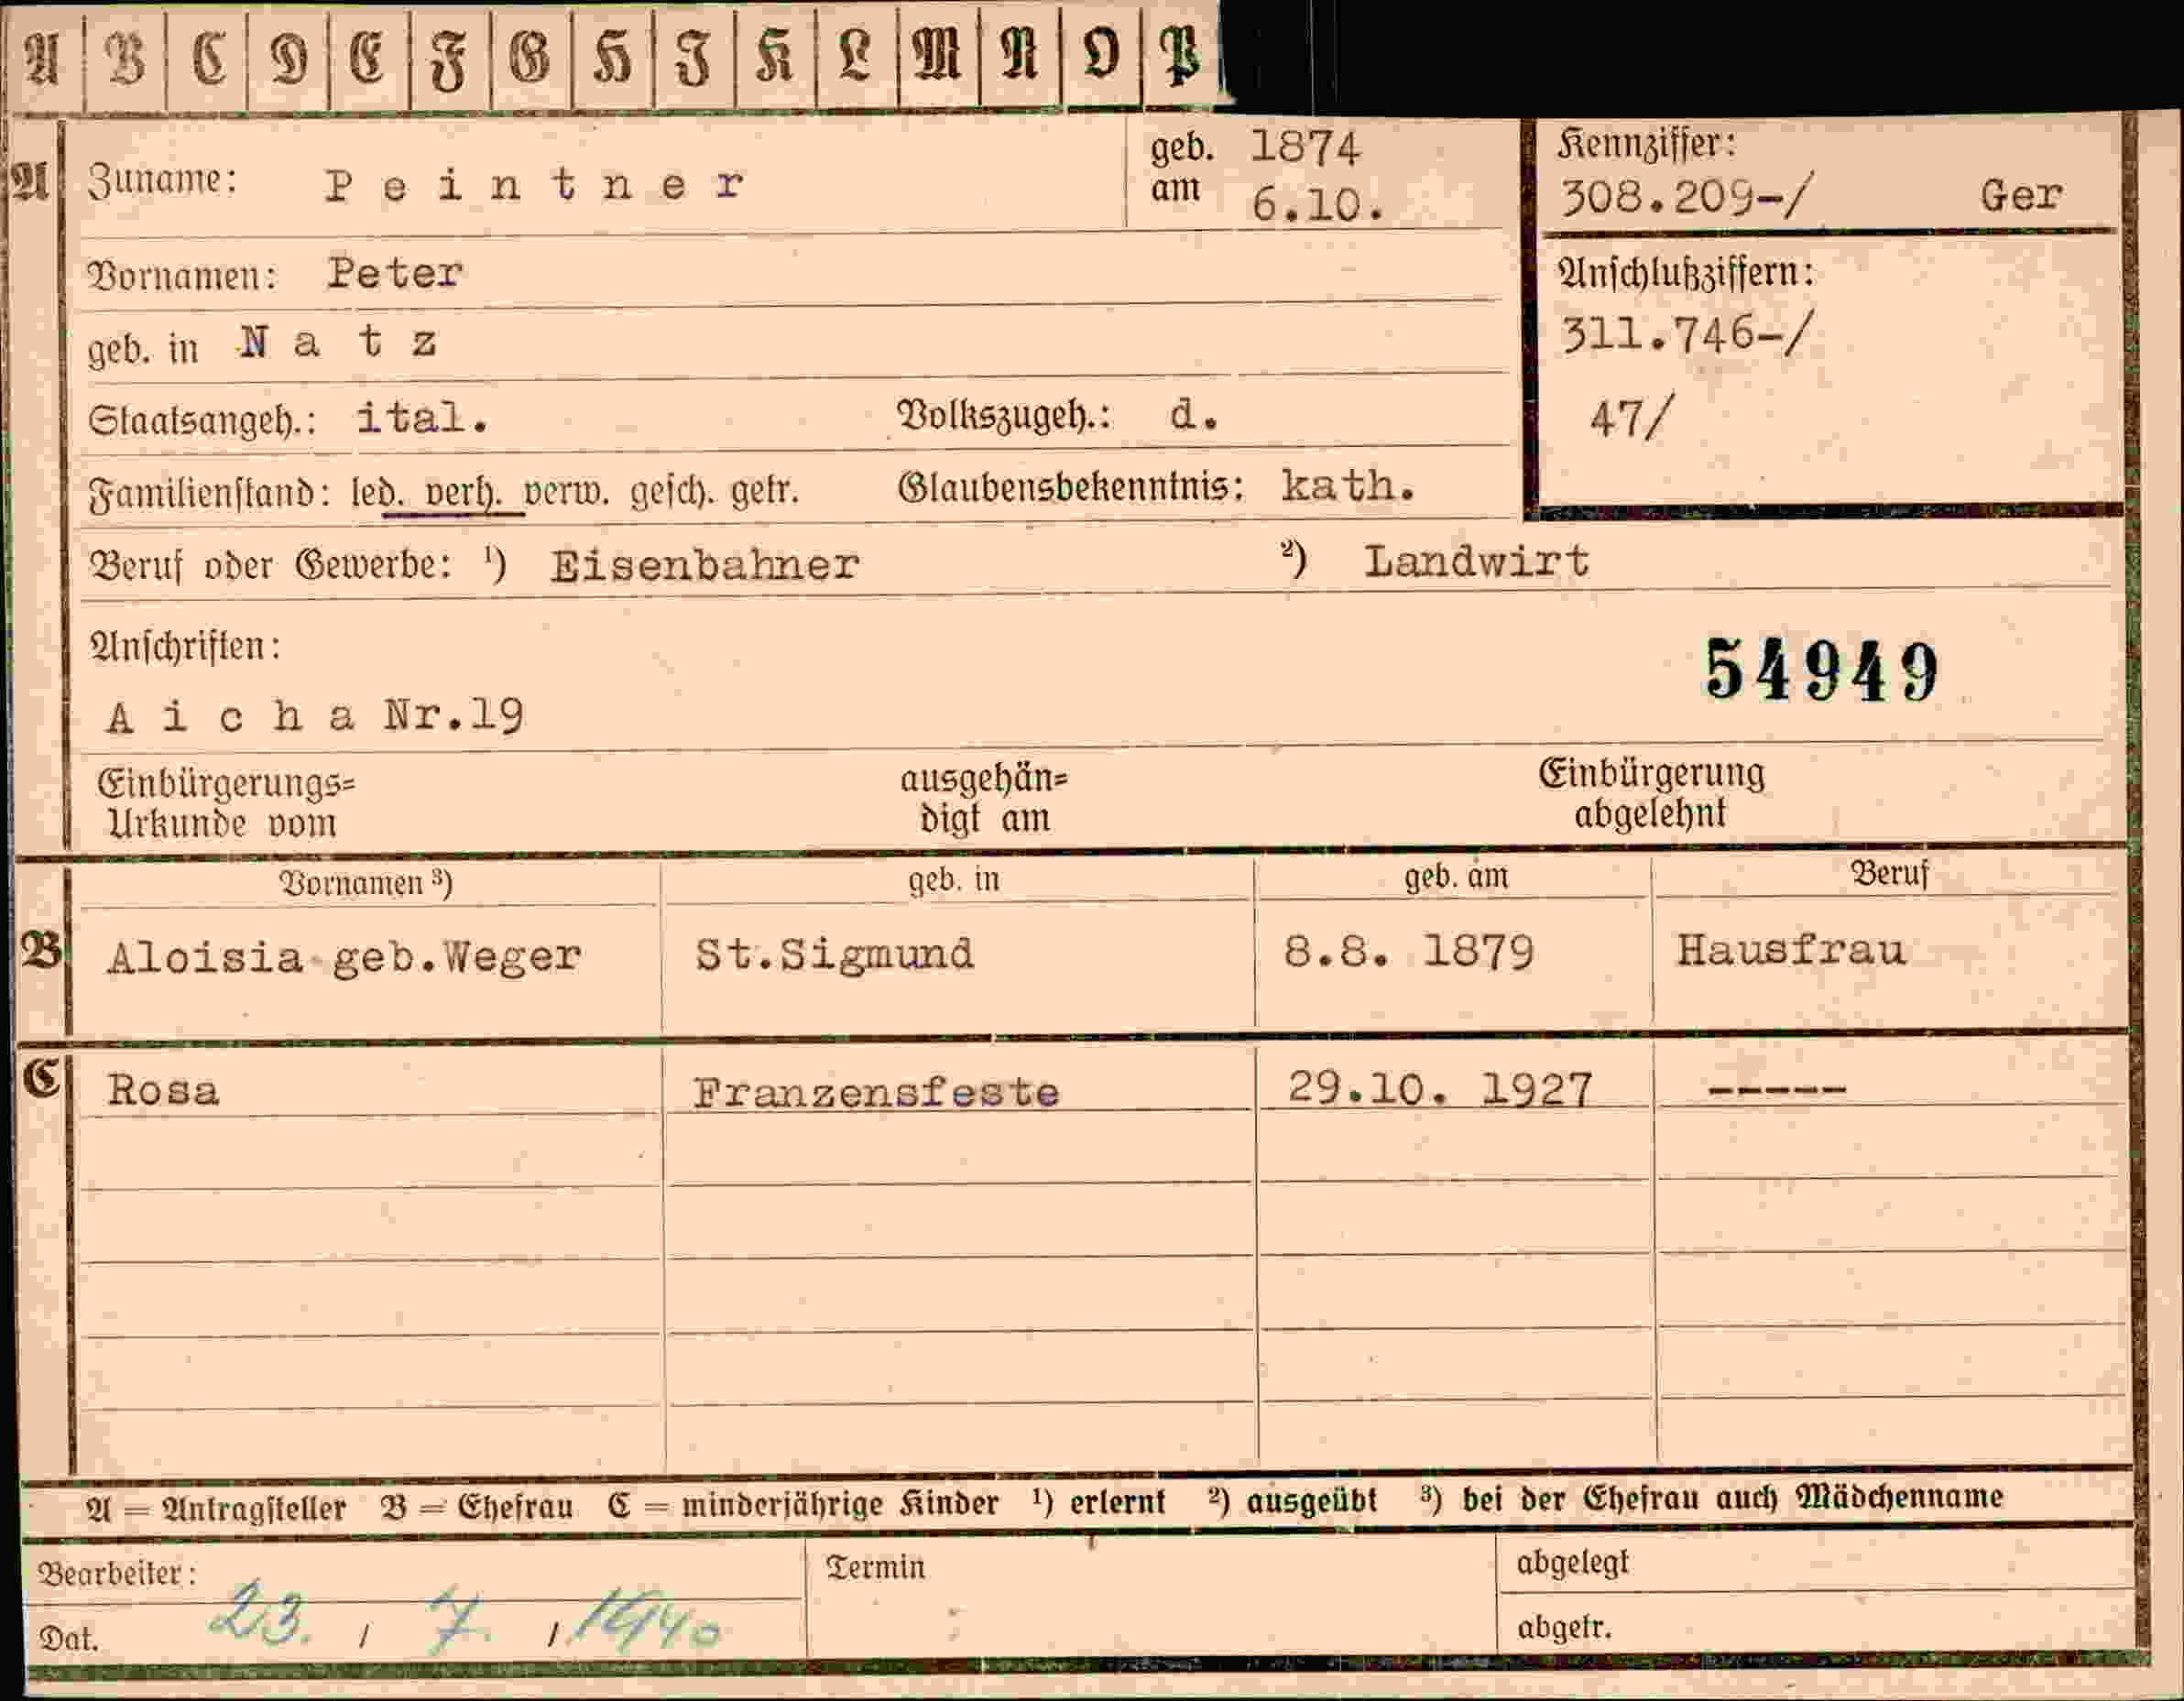 A B C D E F G H I K L M N O P
A Zuname: Peintner geb. am 1874 6.10. Kennziffer:
308.209-/ Ger
Vornamen: Peter Anschlußziffern:
geb. in Natz 311.746-/
Staatsangeh.: ital. Volkszugeh.: d. 47/
Familienstand: led. verh. verw. gesch. getr. Glaubensbekenntnis: kath.
Beruf oder Gewerbe: ¹) Eisenbahner ²) Landwirt
Anschriften: 54949
Aicha Nr.19
Einbürgerungs= ausgehän= Einbürgerung
Urkunde vom digt am abgelehnt
Vornamen ³) geb. in geb. am Beruf
B Aloisia geb.Weger St.Sigmund 8.8. 1879 Hausfrau
C Rosa Franzensfeste 29.10. 1927 -----
A = Antragsteller B = Ehefrau C = minderjährige Kinder ¹) erlernt ²) ausgeübt ³) bei der Ehefrau auch Mädchenname
Bearbeiter: Termin abgelegt
Dat. 23. / 7. / 1940 abgetr.